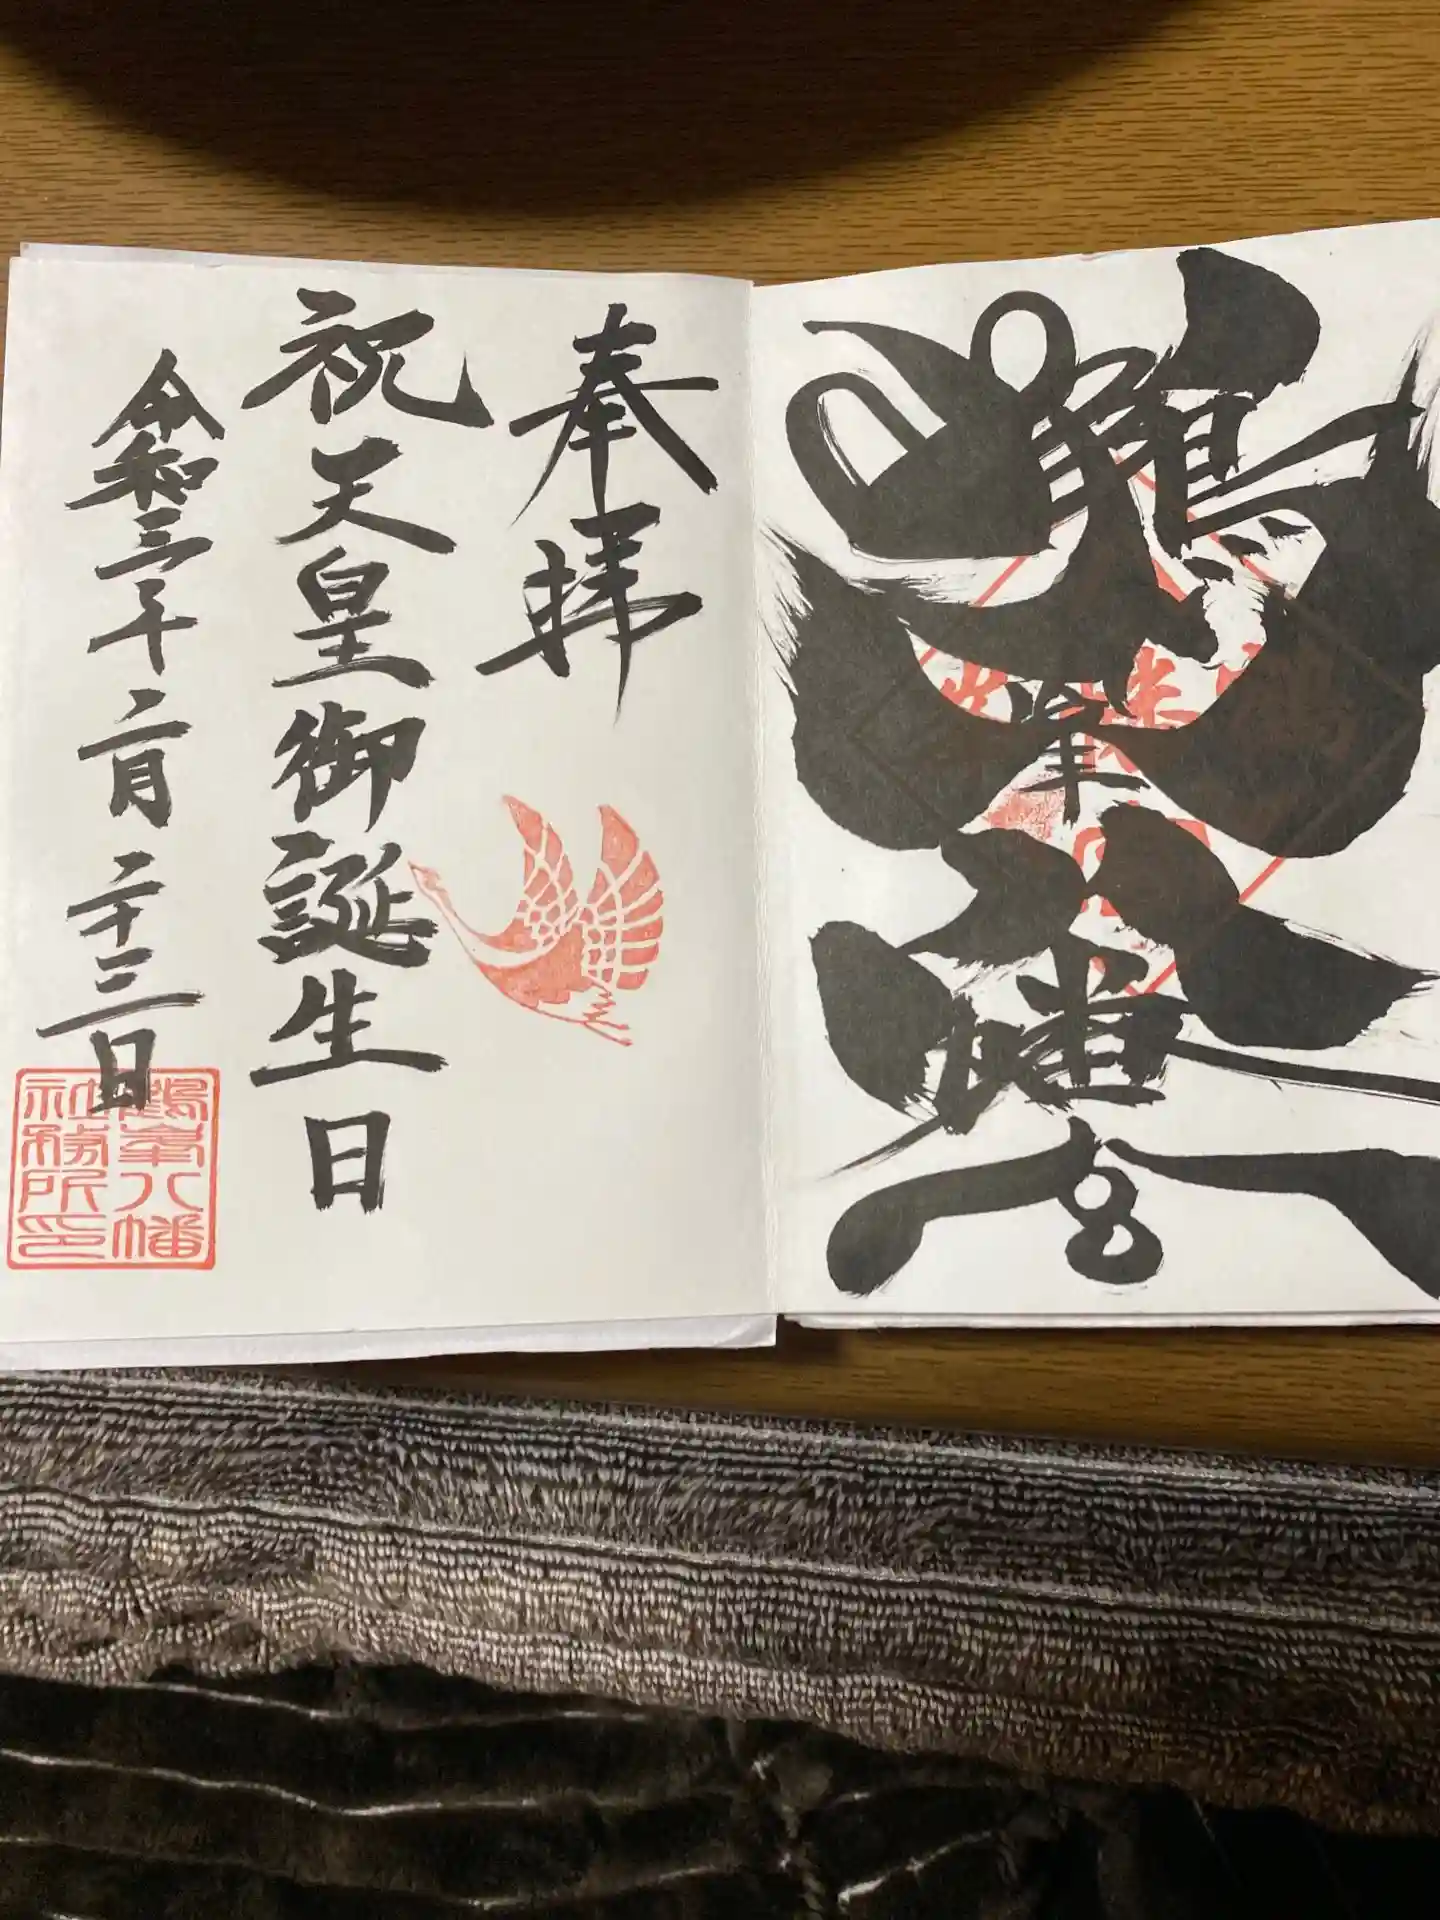 鶴峯八幡宮
奉拝
祝天皇御誕生日
令和三年二月二十三日
鶴峯八幡
社務所印